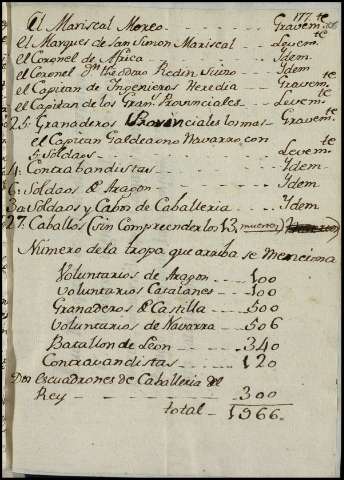 El Mariscal Moreo - Gravem.te
el Marques de San Simon Mariscal - Levem.te
el Coronel de Africa - Idem
el Coronel Dn. Theodoro Redin Suizo - Idem
el Capitan de Ingenieros Heredia - Gravem.te
el Capitan de los Gran. Provinciales - Levem.te
25: Granaderos Provinciales los mas - Gravem.te
el Capitan Galdeano Navarro, con
5: Soldaos - Levem.te
4: Contrabandistas - Idem
6: Soldaos de Aragon - Idem
30 Soldaos y Cabos de Caballeria - Idem
27: Caballos (sin Comprender los 13, muertos)
Número de la tropa que arriba se Menciona
Voluntarios de Aragon - 100
Voluntarios Catalanes - 100
Granaderos de Castilla - 500
Voluntarios de Navarra - 506
Batallon de Leon - 340
Contravandistas - 120
Dos escuadrones de Caballeria del
Rey - 300
total - 1966